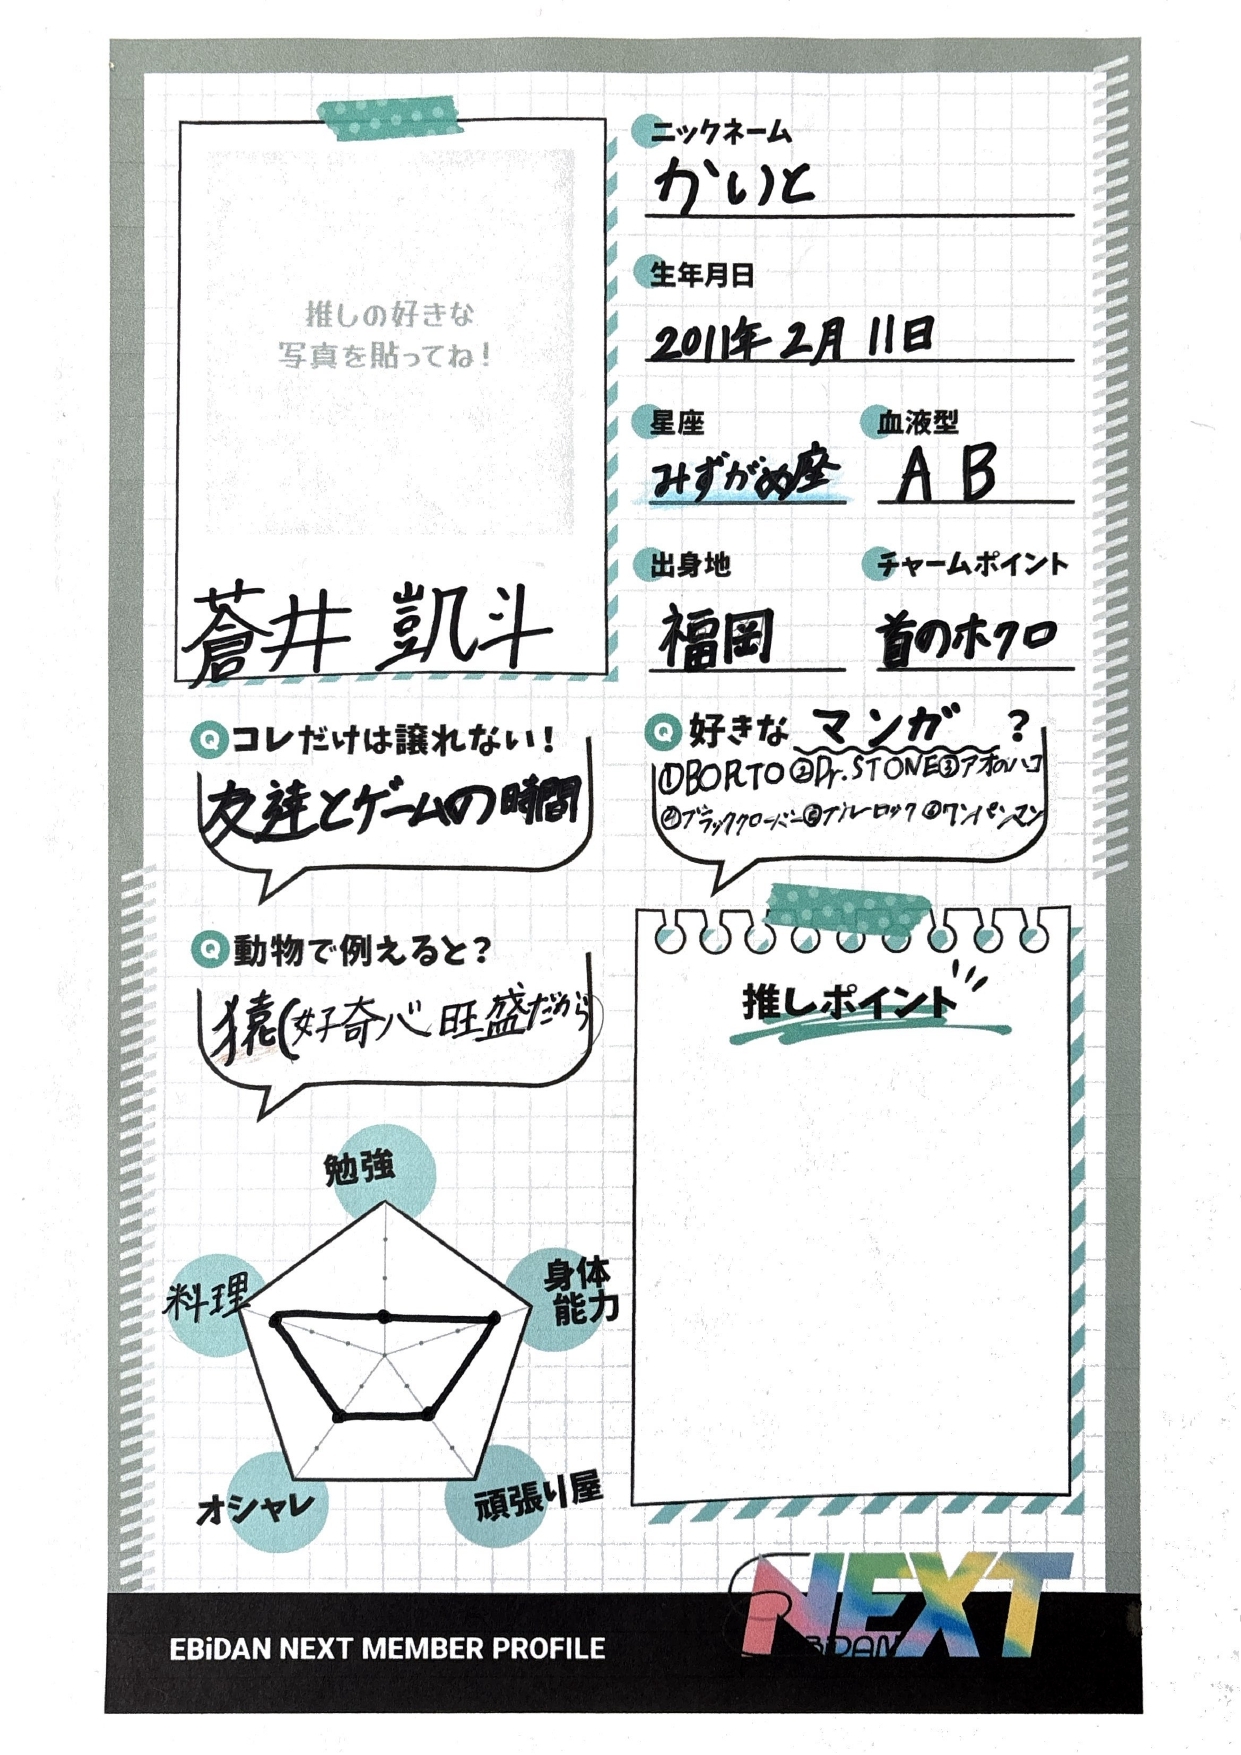 推しの好きな
写真を貼ってね！
蒼井 凱斗
ニックネーム
かいと
生年月日
2011年2月11日
星座
みずがめ座
血液型
AB
出身地
福岡
チャームポイント
首のホクロ
Q コレだけは譲れない！
友達とゲームの時間
Q 好きな マンガ ？
①BORTO②Dr.STONE③アオのハコ
④ブラッククローバー⑤ブルーロック⑥ワンパンマン
Q 動物で例えると？
猿(好奇心旺盛だから)
推しポイント
勉強
身体
能力
頑張り屋
オシャレ
料理
EBiDAN NEXT MEMBER PROFILE
NEXT
EBiDAN